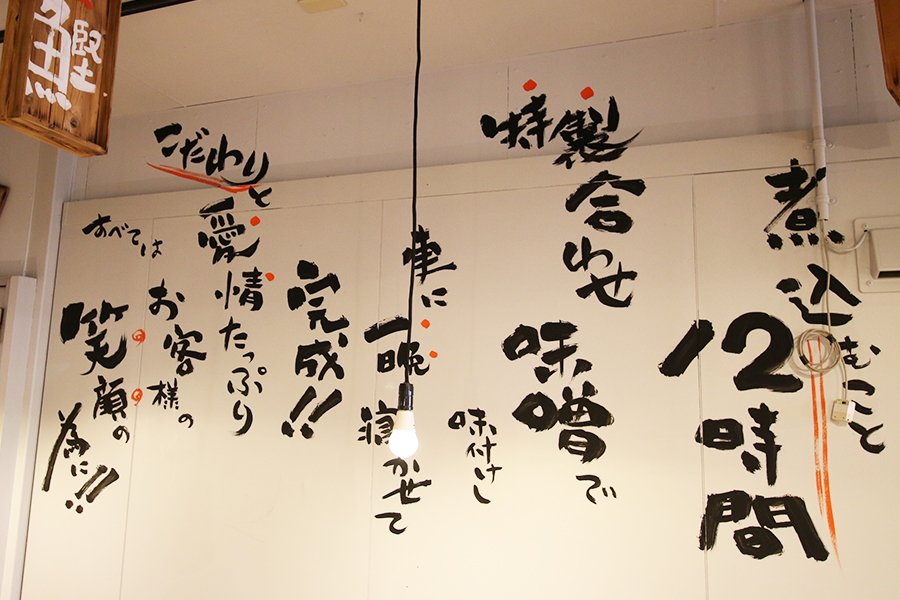 煮込むこと
12時間
特製合わせ味噌で
味付けし
更に一晩寝かせて
完成!!
こだわりと愛情たっぷり
すべてはお客様の
笑顔の為に!!
鰹